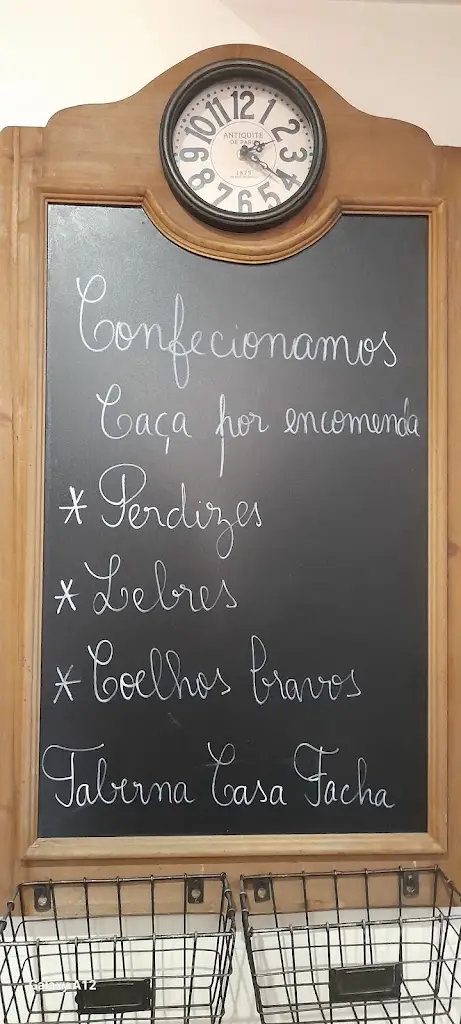 12
2
3
4
5
6
7
8
9
10
11
ANTIQUITE
DE PARIS
1879
Confecionamos
Caça por encomenda
* Perdizes
* Lebres
* Coelhos bravos
Taberna Casa Facha
Galaxy A12